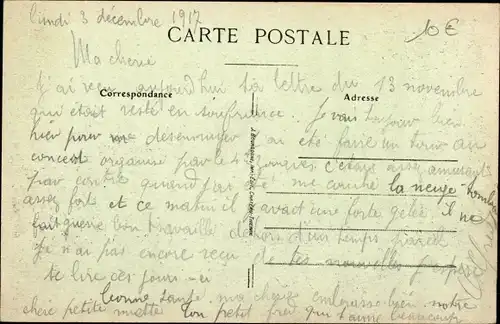 lundi 3 décembre 1917
10€
CARTE POSTALE
Ma cherie
J'ai reçu aujourd'hui ta lettre du 13 novembre
Correspondance
Adresse
qui était resté en souffrance. Je vais toujours bien
hier pour me desennuyer j'ai été faire un tour au
concert organisé par le 4 c'etait assez amusant
par contre quand j'ai été me coucher la neige tombait
assez fort et ce matin il y avait une forte gelée. Il ne
fait guere bon travailler dehors d'un temps pareil
Je n'ai pas encore reçu de tes nouvelles j'espere
te lire ces jours-ci
bonne santé ma cherie embrasse bien notre
chere petite ton petit que t'aime beaucoup